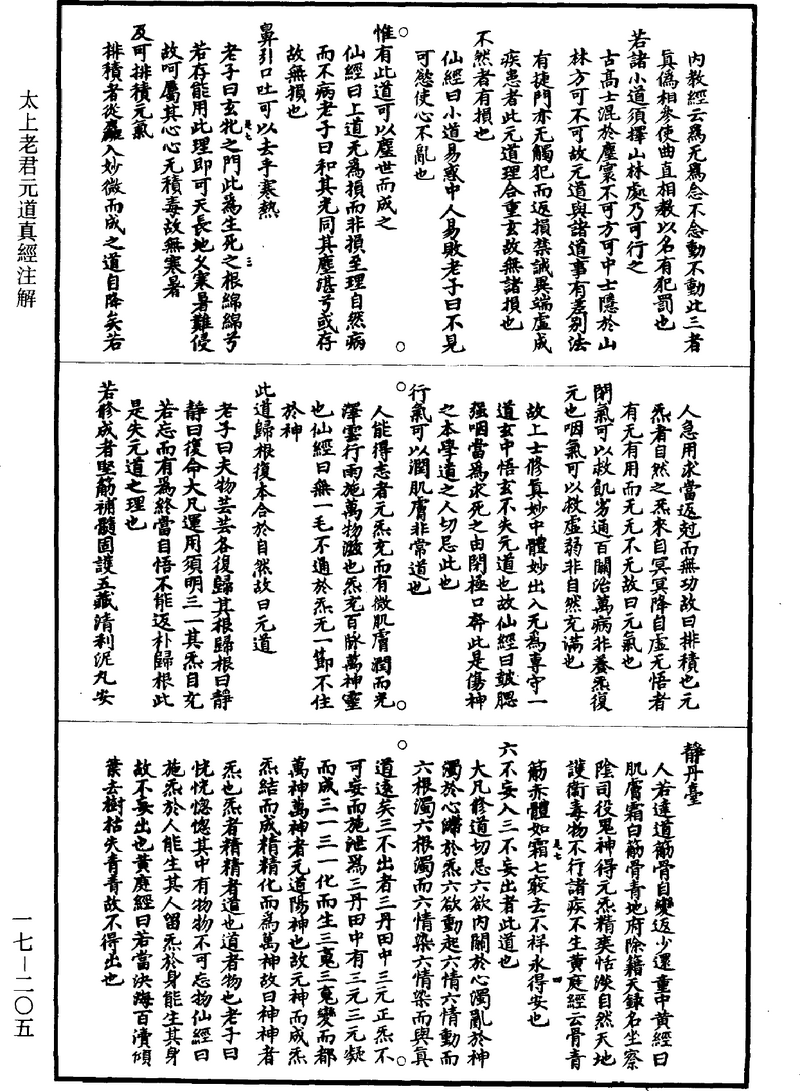 太上老君元道真經注解
一七—二〇五
內教經云爲无爲念不念動不動此三者
真偽相參使曲直相教以名有犯罰也
若諸小道須擇山林處乃可行之
古高士混於塵寰不可方可中士隱於山
林方可不可故元道與諸道事有差別法
有捷門亦无觸犯而返損禁誡異端虛成
疾患者此元道理合重玄故無諸損也
不然者有損也
仙經曰小道易惑中人易敗老子曰不見
可慾使心不亂也
惟有此道可以塵世而成之
仙經曰上道无爲損而非損至理自然病
而不病老子曰和其光同其塵湛兮或存
故無損也
鼻引口吐可以去乎寒熱
老子曰玄牝之門此爲生死之根綿綿兮
若存能用此理即可天長地久寒暑難侵
故呵屬其心心无積毒故無寒暑
及可排積元氣
排積者從麤入妙微而成之道自降矣若
人急用求當返剋而無功故曰排積也元
炁者自然之炁來自冥冥降自虛无悟者
有无有用而无无不无故曰元氣也
閉氣可以救飢劣通百關治萬病非養炁復
元也咽氣可以救虛弱非自然充滿也
故上士修真妙中體妙出入无爲專守一
道玄中悟玄不失元道也故仙經曰皷腮
强咽當爲求死之由閉極口奔此是傷神
之本學道之人切忌此也
行氣可以潤肌膚非常道也
人能得志者元炁充而有微肌膚潤而光
澤雲行雨施萬物滋也炁充百脉萬神靈
也仙經曰無一毛不通於炁无一節不住
於神
此道歸根復本合於自然故曰元道
老子曰夫物芸芸各復歸其根歸根曰靜
靜曰復命大凡運用須明三一其炁自充
若忘而有爲終當自悟不能返朴歸根此
是失元道之理也
若修成者堅筋補髓固護五藏清利泥丸安
靜丹臺
人若達道筋骨自變返少還童中黃經曰
肌膚霜白筋骨青地府除籍天錄名坐察
陰司役鬼神得元炁精爽恬淡自然天地
護衛毒物不行諸疾不生黃庭經云骨青
筋赤體如霜七竅去不祥永得安也
六不妄入三不妄出者此道也
大凡修道切忌六欲內關於心濁亂於神
濁於心歸於炁六欲動起六情六情動而
六根濁六根濁而六情染六情染而與真
道遠矣三不出者三丹田中三元正炁不
可妄而施泄爲三丹田中有三元三元凝
而成三一三一化而生三䰟三䰟變而都
萬神萬神者元道陽神也故元神而成炁
炁結而成精精化而爲萬神故曰神神者
炁也炁者精精者道也道者物也老子曰
恍恍惚惚其中有物物不可忘物仙經曰
施炁於人能生其人留炁於身能生其身
故不妄出也黃庭經曰若當決海百瀆傾
葉去樹枯失青青故不得出也